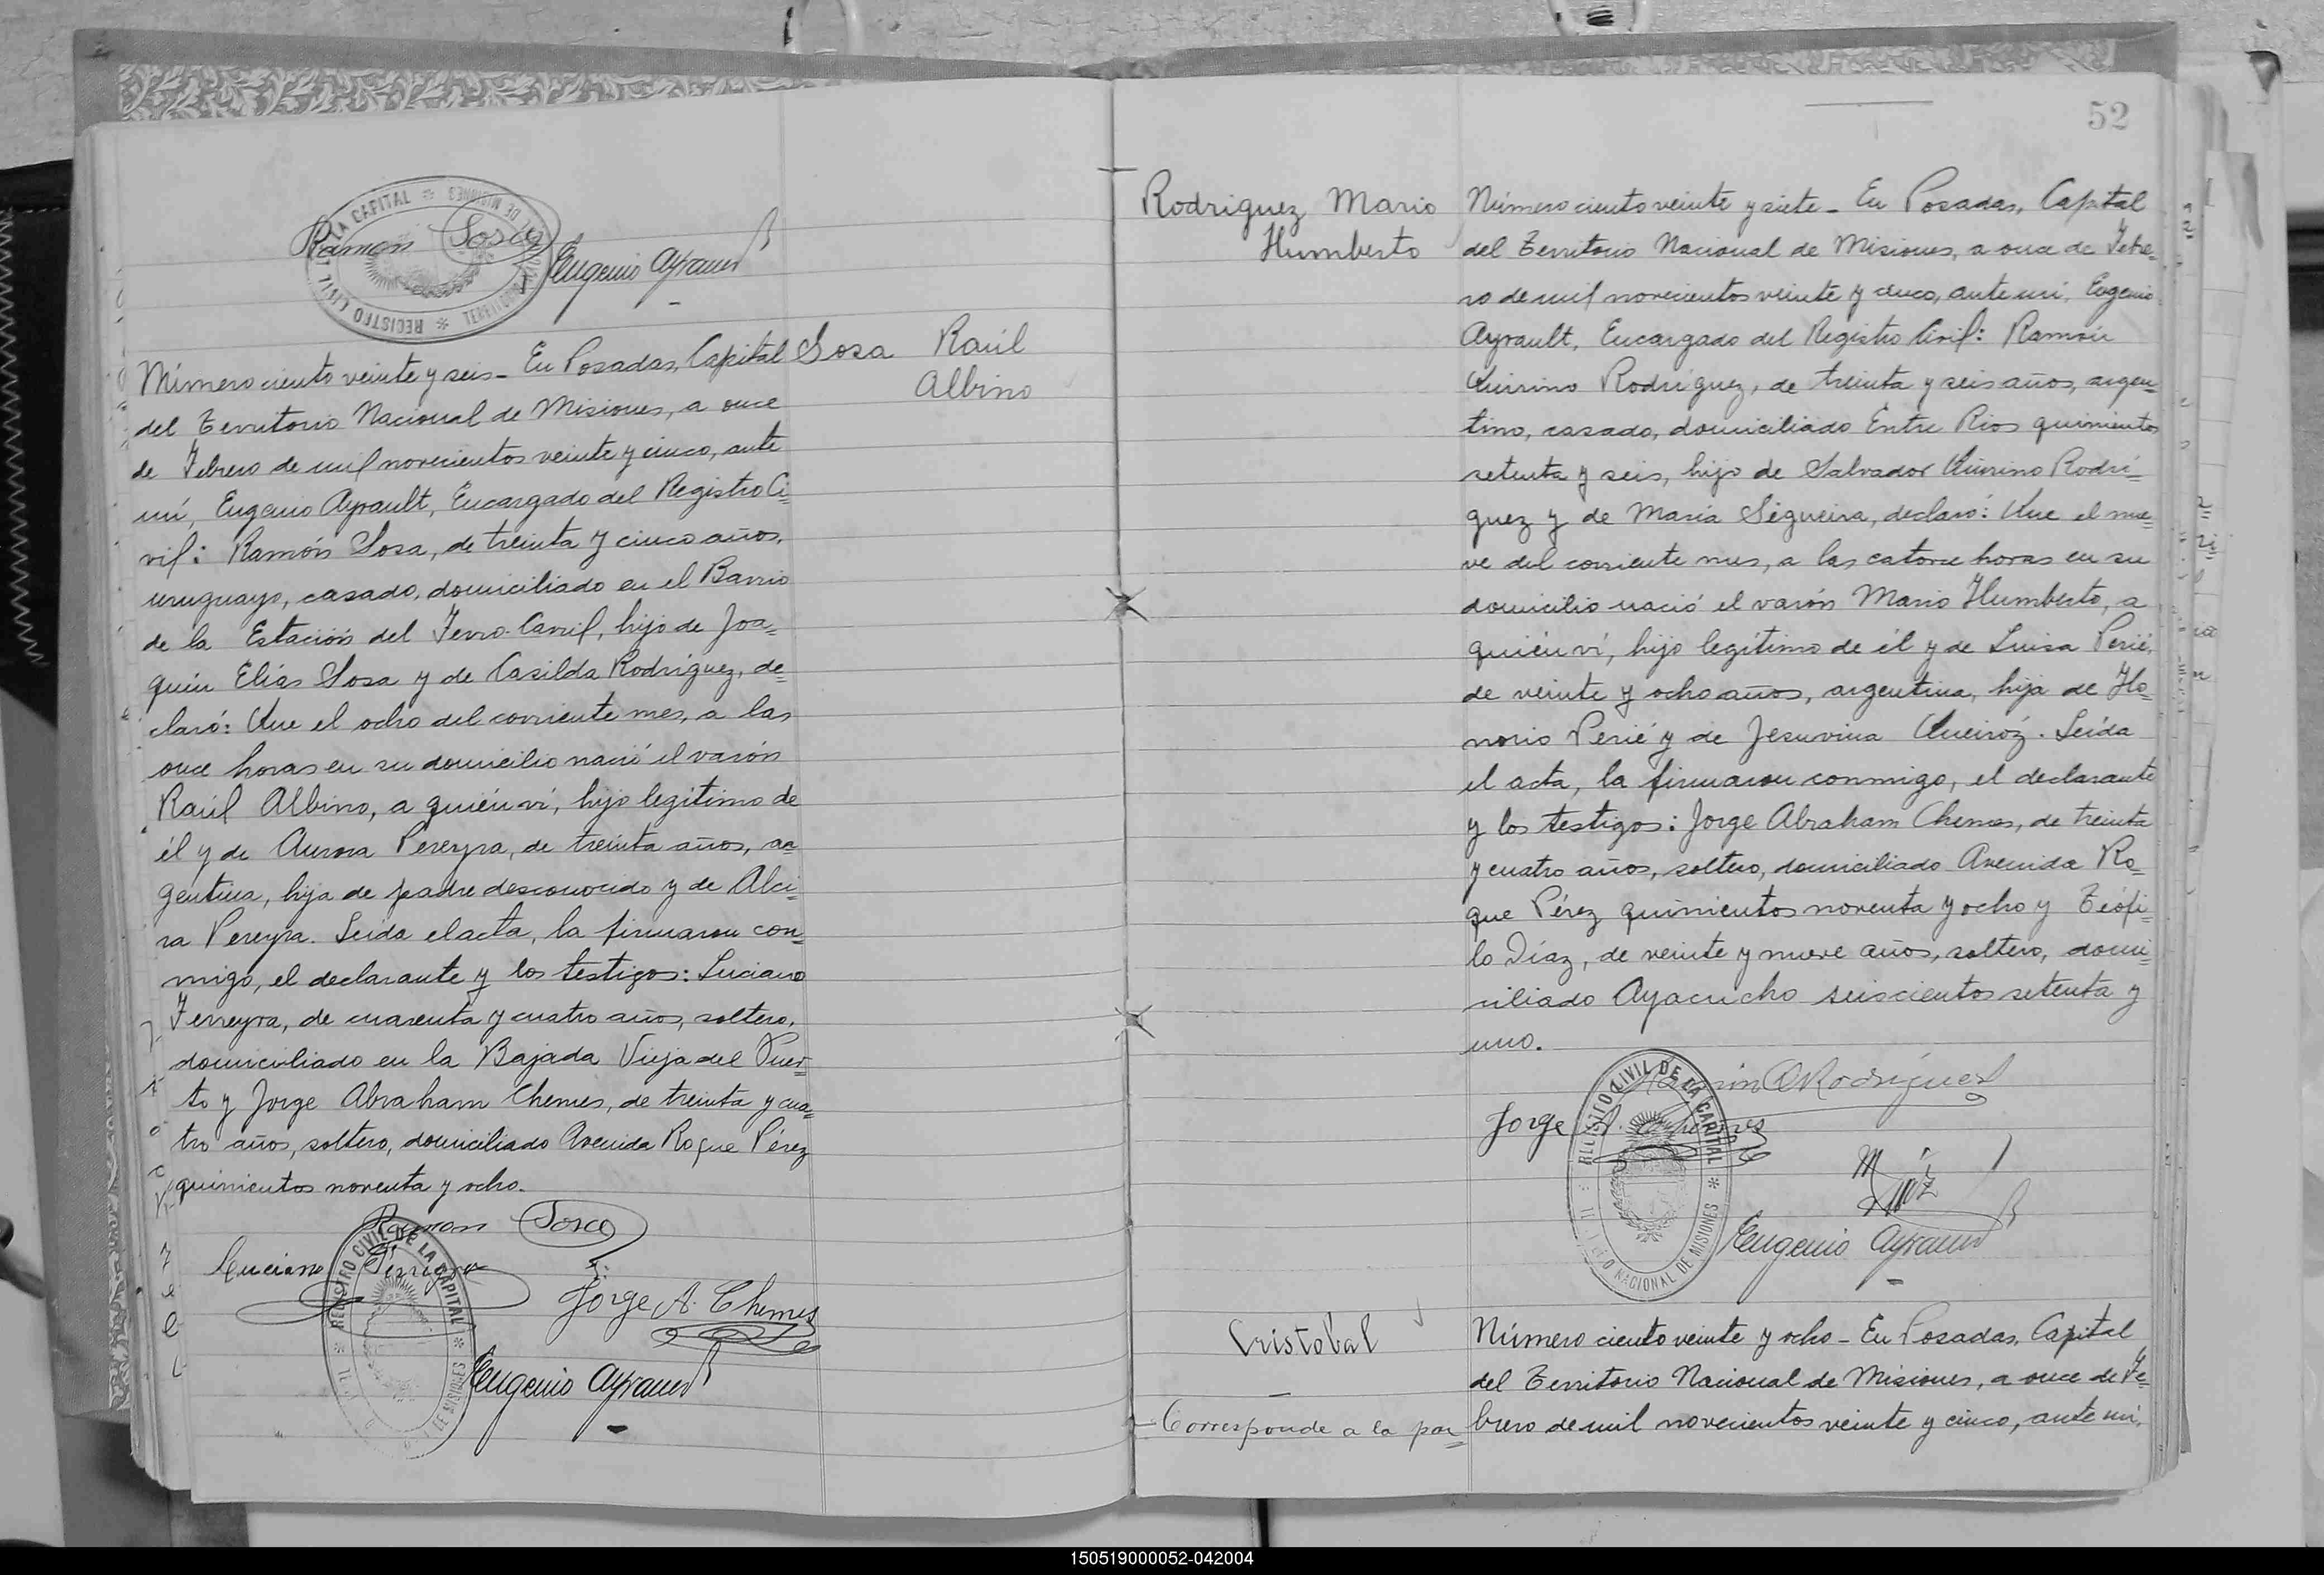 Ramon Sosa
Eugenio Ayrault
REGISTRO CIVIL DE LA CAPITAL
Número ciento veinte y seis - En Posadas, Capital
del Territorio Nacional de Misiones, a once
de Febrero de mil novecientos veinte y cinco, ante
mí, Eugenio Ayrault, Encargado del Registro Ci=
vil: Ramón Sosa, de treinta y cinco años,
uruguayo, casado, domiciliado en el Barrio
de la Estación del Ferro-Carril, hijo de Joa=
quin Elías Sosa y de Casilda Rodríguez, de=
claró: Que el ocho del corriente mes, a las
once horas en su domicilio nació el varón
Raúl Albino, a quién ví, hijo legítimo de
él y de Aurora Pereyra, de treinta años, ar=
gentina, hija de padre desconocido y de Alci=
ra Pereyra. Leída el acta, la firmaron con=
migo, el declarante y los testigos: Luciano
Ferreyra, de cuarenta y cuatro años, soltero,
domiciliado en la Bajada Vieja del Puer=
to y Jorge Abraham Chemes, de treinta y cua=
tro años, soltero, domiciliado Avenida Roque Pérez
quinientos noventa y ocho.
Ramon Sosa
Luciano Ferreyra
Jorge A. Chemes
Eugenio Ayrault
REGISTRO CIVIL DE LA CAPITAL
Sosa Raúl
Albino
52
Rodriguez Mario
Humberto
Número ciento veinte y siete - En Posadas, Capital
del Territorio Nacional de Misiones, a once de Febre=
ro de mil novecientos veinte y cinco, ante mí, Eugenio
Ayrault, Encargado del Registro Civil: Ramón
Quirino Rodríguez, de treinta y seis años, argen=
tino, casado, domiciliado Entre Rios quinientos
setenta y seis, hijo de Salvador Quirino Rodrí=
guez y de María Sigueira, declaró: Que el nue=
ve del corriente mes, a las catorce horas en su
domicilio nació el varón Mario Humberto, a
quién ví, hijo legítimo de él y de Luisa Perié,
de veinte y ocho años, argentina, hija de Ho=
norio Perié y de Jesuvina Queiróz. Leída
el acta, la firmaron conmigo, el declarante
y los testigos: Jorge Abraham Chemes, de treinta
y cuatro años, soltero, domiciliado Avenida Ro=
que Pérez quinientos noventa y ocho y Teófi=
lo Díaz, de veinte y nueve años, soltero, domi=
ciliado Ayacucho seiscientos setenta y
uno.
Ramón Q Rodríguez
Jorge A. Chemes
Eugenio Ayrault
REGISTRO CIVIL DE LA CAPITAL
NACIONAL DE MISIONES
Cristóbal
Corresponde a la par=
Número ciento veinte y ocho - En Posadas, Capital
del Territorio Nacional de Misiones, a once de Fe=
brero de mil novecientos veinte y cinco, ante mí,
150519000052-042004